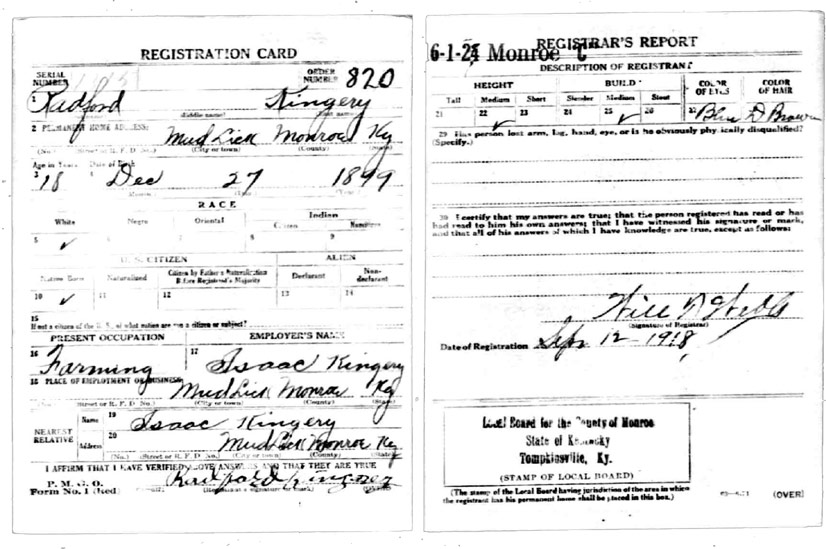 REGISTRATION CARD
SERIAL NUMBER
ORDER NUMBER 820
1 Radford Kingery
(Middle name) (Last name)
2 PERMANENT HOME ADDRESS:
Mud Lick Monroe Ky
(No.) (City or town) (County) (State)
Age in Years Date of Birth
3 18 4 Dec 27 1899
RACE
White Negro Oriental Indian
Citizen
5 ✓ 6 7 8 9
U. S. CITIZEN ALIEN
Native Born Naturalized Citizen by Father's Naturalization Before Registrant's Majority Declarant Non-declarant
10 ✓ 11 12 13 14
15
If not a citizen of the U. S., of what nation are you a citizen or subject?
PRESENT OCCUPATION EMPLOYER'S NAME
16 Farming 17 Isaac Kingery
18 PLACE OF EMPLOYMENT OR BUSINESS
Mud Lick Monroe Ky
(Street or R. F. D. No.) (City or town) (County) (State)
NEAREST RELATIVE
Name 19 Isaac Kingery
Address 20 Mud Lick Monroe Ky
(No.) (Street or R. F. D. No.) (City or town) (County) (State)
I AFFIRM THAT I HAVE VERIFIED ABOVE ANSWERS AND THAT THEY ARE TRUE
P. M. G. O.
Form No. 1 (Red)
(Registrant's signature or mark)
REGISTRAR'S REPORT
6-1-24 Monroe C
DESCRIPTION OF REGISTRANT
HEIGHT BUILD COLOR OF EYES COLOR OF HAIR
Tall Medium Short Slender Medium Stout
21 22 ✓ 23 24 25 ✓ 26 27 Blue D Brown
29 Has person lost arm, leg, hand, eye, or is he obviously physically disqualified?
(Specify.)
30 I certify that my answers are true; that the person registered has read or has
had read to him his own answers; that I have witnessed his signature or mark,
and that all of his answers of which I have knowledge are true, except as follows:
Will
(Signature of Registrar)
Date of Registration Sep 12 - 1918
Local Board for the County of Monroe
State of Kentucky
Tompkinsville, Ky.
(STAMP OF LOCAL BOARD)
(The stamp of the Local Board having jurisdiction of the area in which
the registrant has his permanent home shall be placed in this box.)
(OVER)